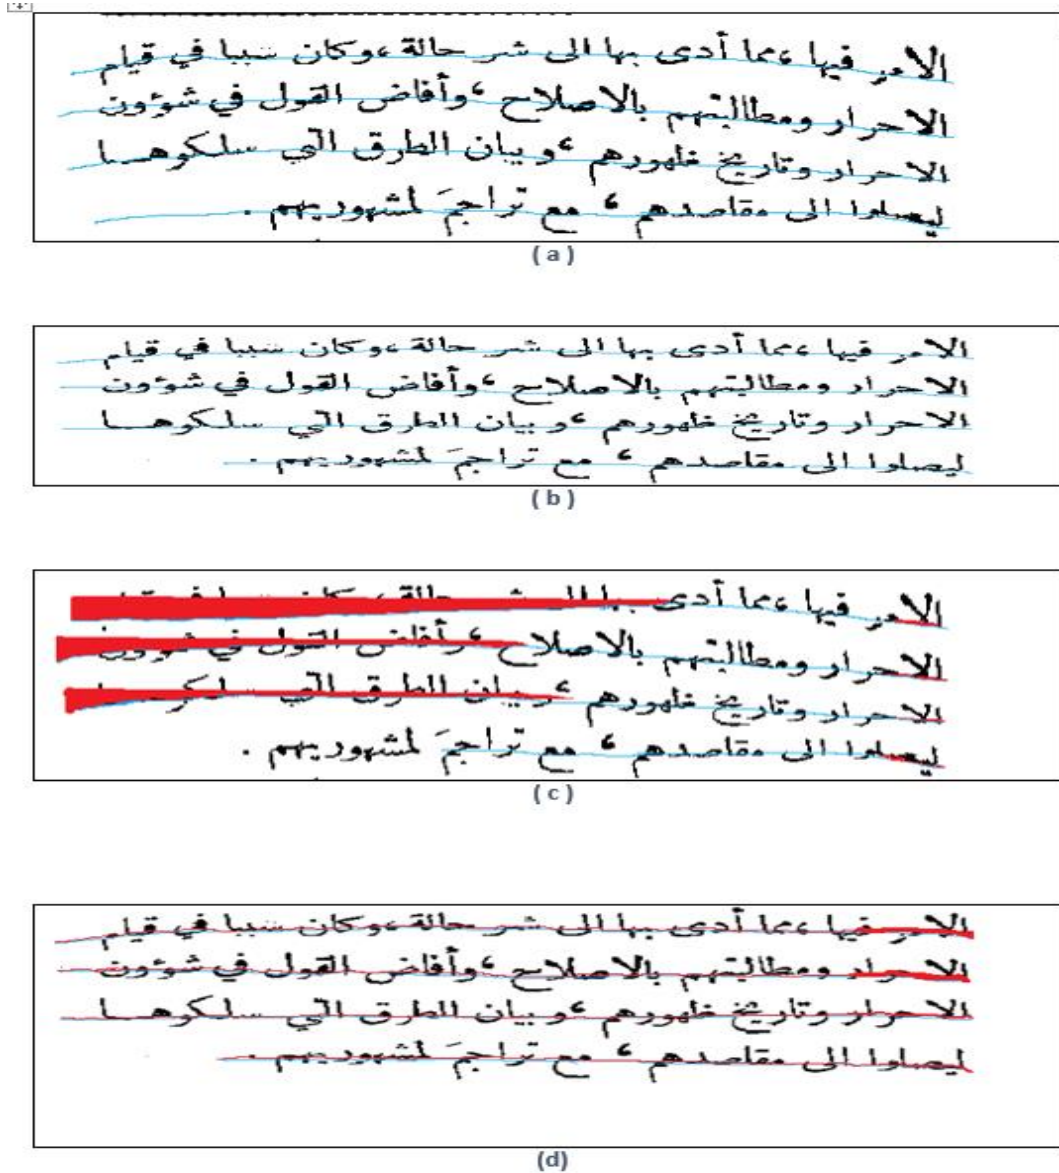 الامر فيها ،مما أدى بها الى شر حالة ،وكان سببا في قيام
الاحرار ومطالبتهم بالاصلاح ،وأفاض القول في شؤون
الاحرار وتاريخ ظهورهم ،وبيان الطرق التي سلكوهــا
ليصلوا الى مقاصدهم ، مع تراجمَ لمشهوريهم .
( a )
الامر فيها ،مما أدى بها الى شر حالة ،وكان سببا في قيام
الاحرار ومطالبتهم بالاصلاح ،وأفاض القول في شؤون
الاحرار وتاريخ ظهورهم ،وبيان الطرق التي سلكوهــا
ليصلوا الى مقاصدهم ، مع تراجمَ لمشهوريهم .
( b )
الامر فيها ،مما أدى بها الى شر حالة ،وكان سببا في
الاحرار ومطالبتهم بالاصلاح ،وأفاض القول في شؤون
الاحرار وتاريخ ظهورهم ،وبيان الطرق التي
ليصلوا الى مقاصدهم ، مع تراجمَ لمشهوريهم .
( c )
الامر فيها ،مما أدى بها الى شر حالة ،وكان سببا في قيام
الاحرار ومطالبتهم بالاصلاح ،وأفاض القول في شؤون
الاحرار وتاريخ ظهورهم ،وبيان الطرق التي سلكوهــا
ليصلوا الى مقاصدهم ، مع تراجمَ لمشهوريهم .
(d)